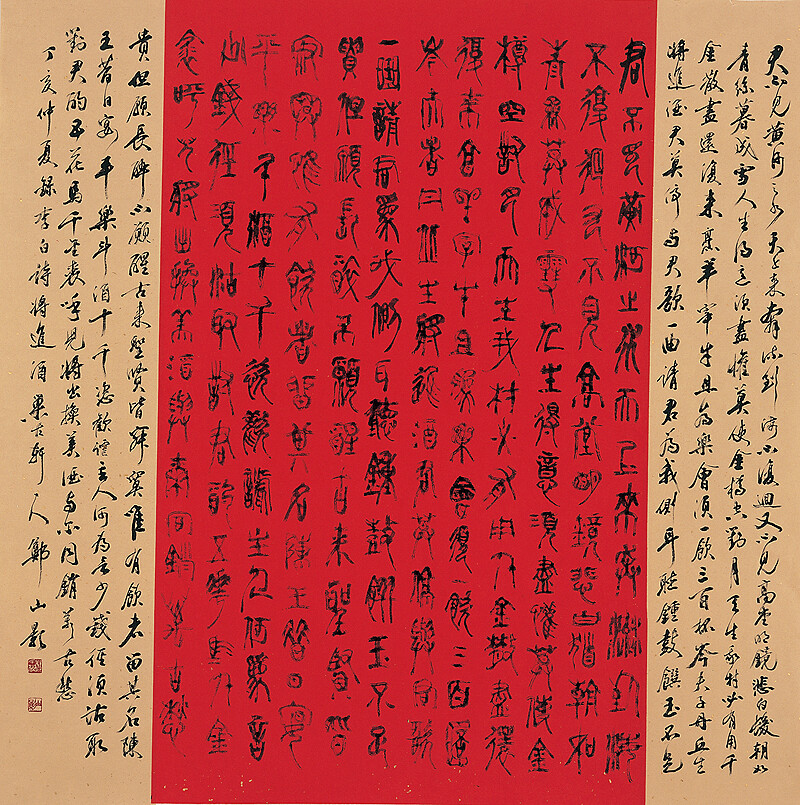 君不見黃河之水天上来奔流到海不復迴又不見高堂明鏡悲白髮朝如
青絲暮成雪人生得意須盡懽莫使金樽空對月天生我材必有用千
金散盡還復来烹羊宰牛且為樂會須一飲三百杯岑夫子丹丘生
將進酒君莫停与君歌一曲請君為我側耳聽鍾鼓饌玉不足
君不見黃河之水天上來奔流到海
不復迴君不見高堂明鏡悲白髮朝如
青絲暮成雪人生得意須盡懽莫使金
樽空對月天生我材必有用千金散盡還
復來烹羊宰牛且為樂會須一飲三百杯
岑夫子丹丘生將進酒君莫停與君歌
一曲請君為我側耳聽鍾鼓饌玉不足
貴但願長醉不願醒古來聖賢皆
寂寞唯有飲者留其名陳王昔日宴
平樂斗酒十千恣歡謔主人何為言
少錢徑須沽取對君酌五花馬千金
裘呼兒將出換美酒與爾同銷萬古愁
貴但願長醉不願醒古来聖賢皆寂寞唯有飲者留其名陳
王昔日宴平樂斗酒十千恣歡謔主人何為言少錢徑須沽取
對君酌五花馬千金裘呼兒將出換美酒与尔同銷萬古愁
丁亥仲夏錄李白詩將進酒樂古軒人鄭山影